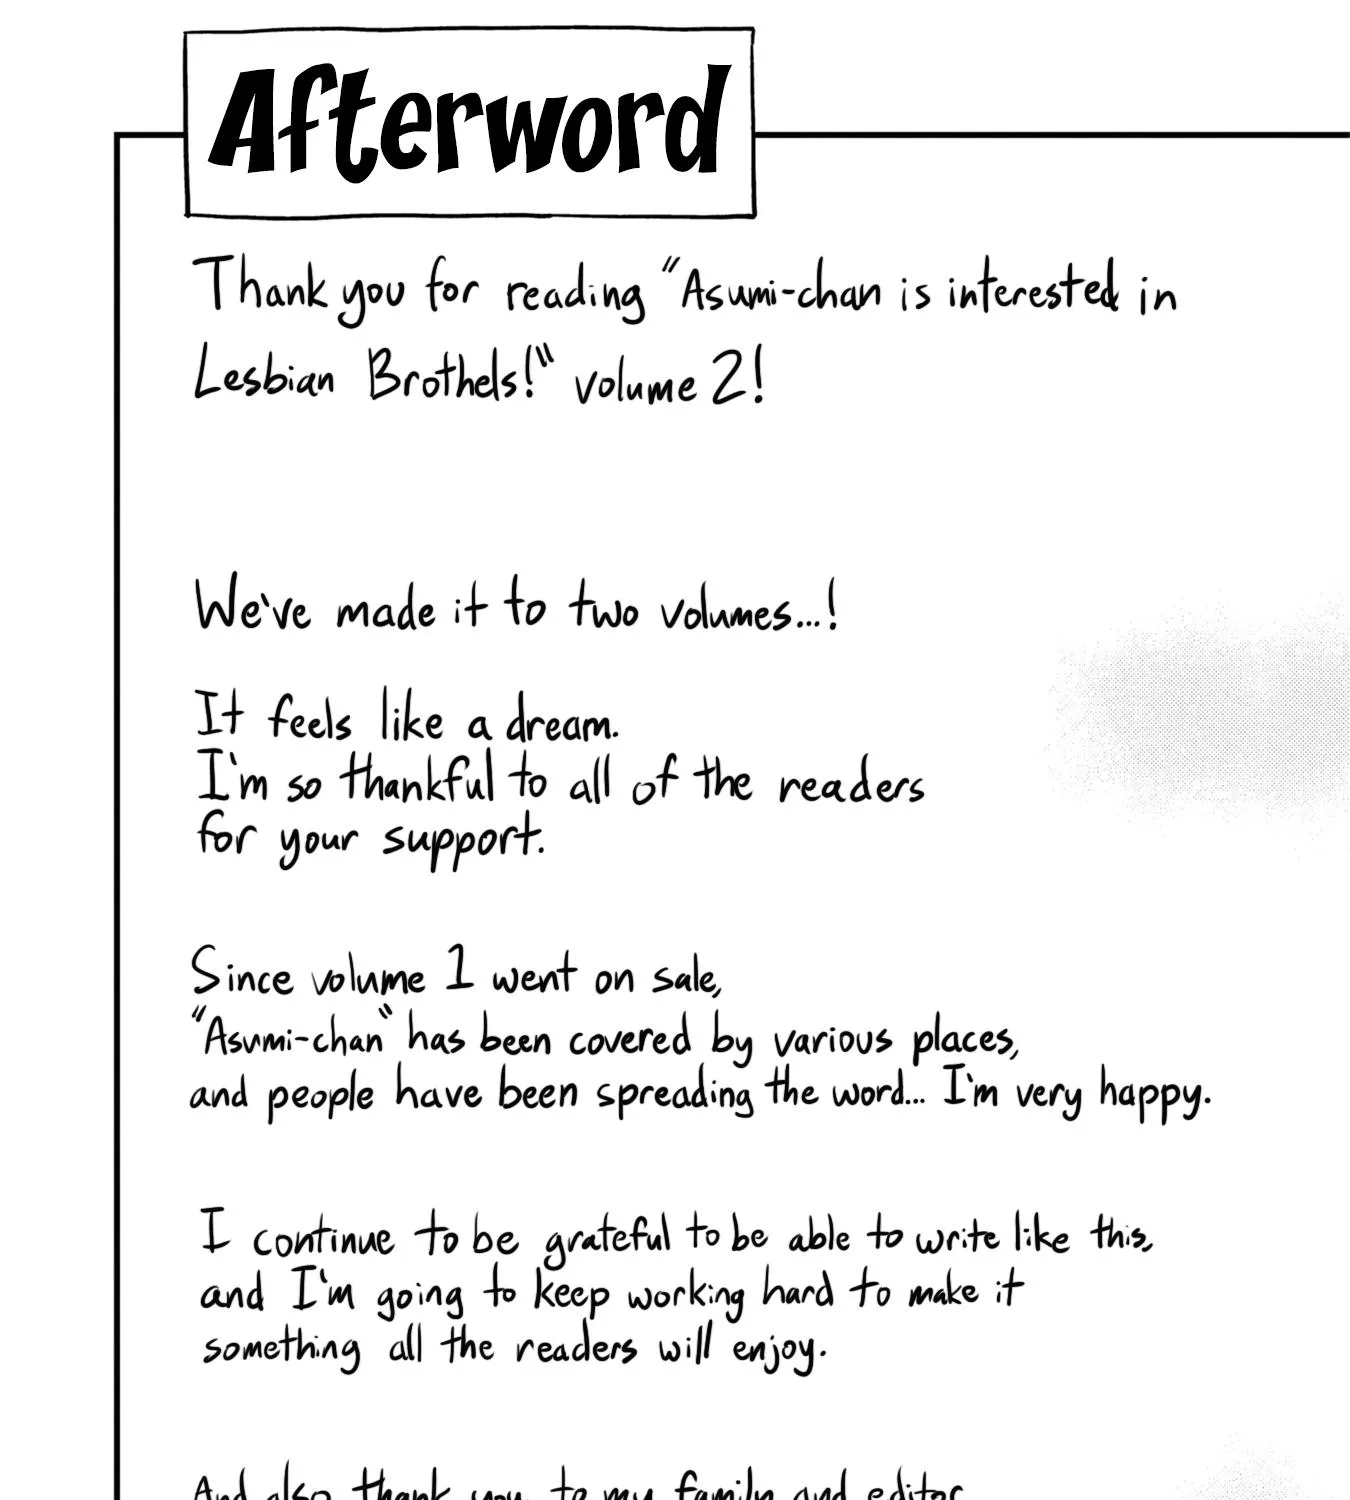 Afterword
Thank you for reading "Asumi-chan is interested in
Lesbian Brothels!" volume 2!
We've made it to two volumes...!
It feels like a dream.
I'm so thankful to all of the readers
for your support.
Since volume 1 went on sale,
"Asumi-chan" has been covered by various places,
and people have been spreading the word... I'm very happy.
I continue to be grateful to be able to write like this,
and I'm going to keep working hard to make it
something all the readers will enjoy.
And also thank you to my family and editor